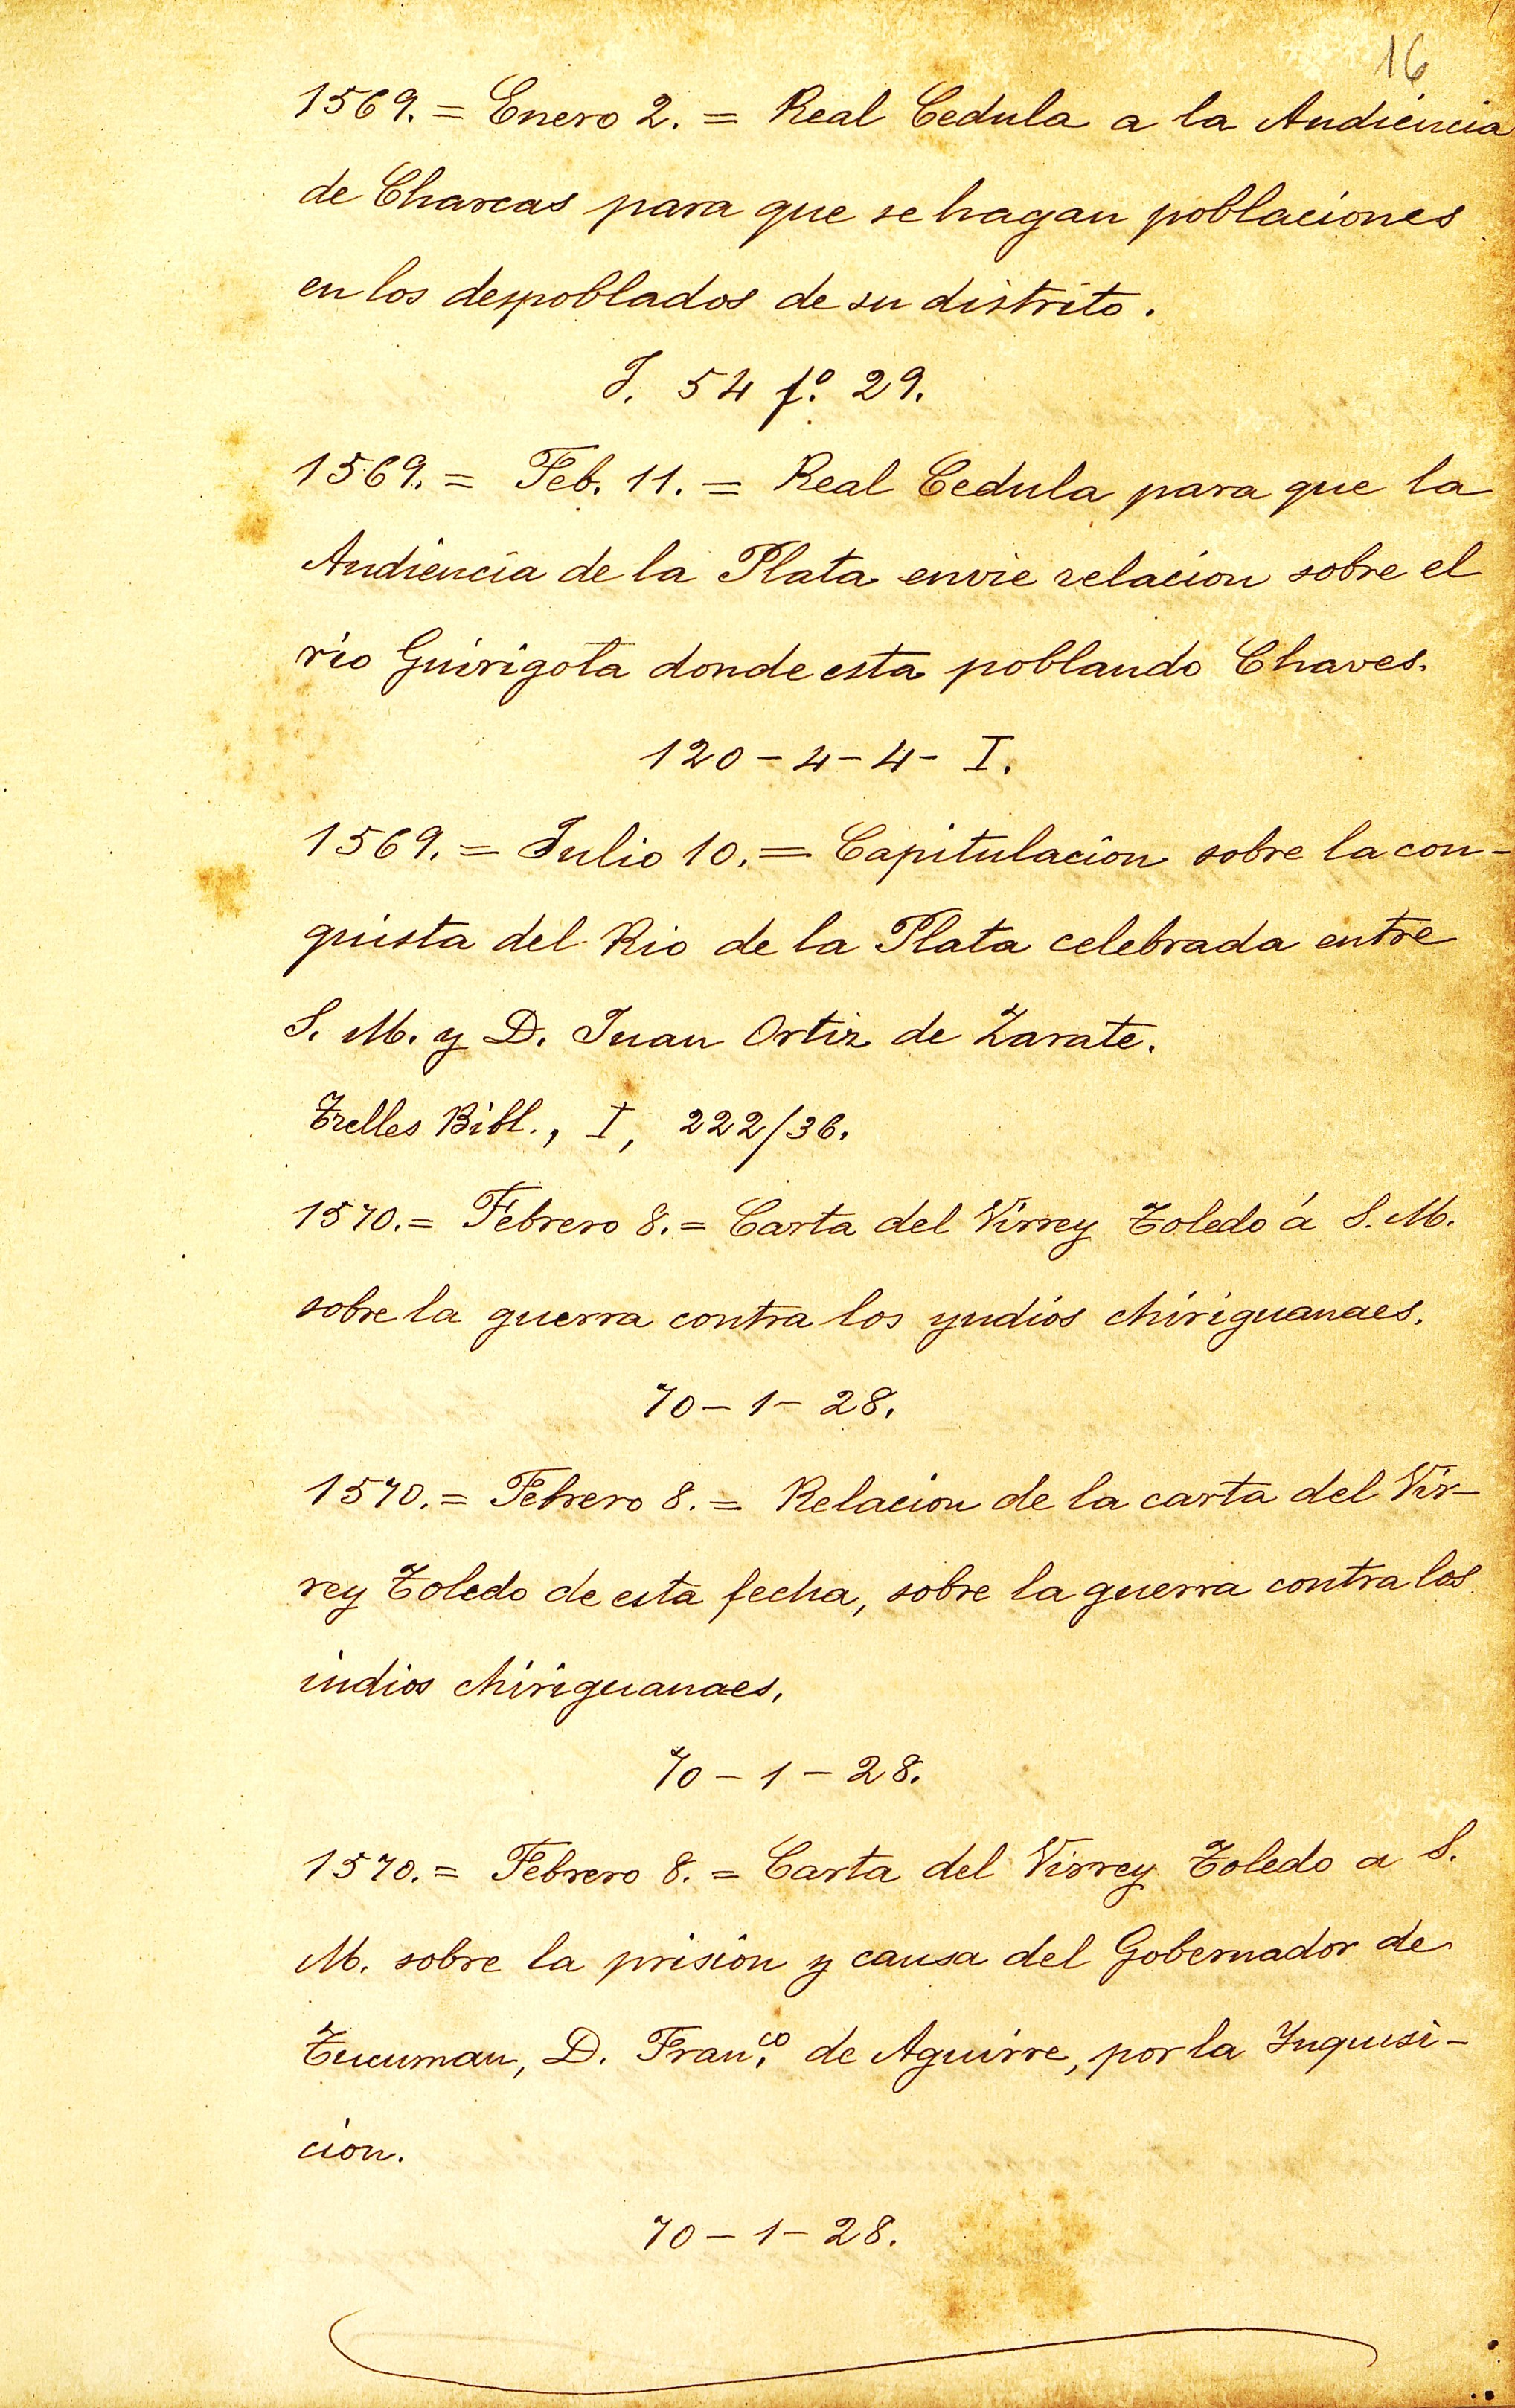 16
1569. = Enero 2. = Real Cedula a la Audiencia
de Charcas para que se hagan poblaciones
en los despoblados de su distrito.
J. 54 fº. 29.
1569. = Feb. 11. = Real Cedula para que la
Audiencia de la Plata envie relacion sobre el
rio Guirigota donde esta poblando Chaves.
120-4-4- I.
1569. = Julio 10. = Capitulacion sobre la con-
quista del Rio de la Plata celebrada entre
S. M. y D. Juan Ortiz de Zarate.
Trelles Bibl., I, 222/36.
1570. = Febrero 8. = Carta del Virrey Toledo á S. M.
sobre la guerra contra los yndios chiriguanaes.
70-1-28.
1570. = Febrero 8. = Relacion de la carta del Vir-
rey Toledo de esta fecha, sobre la guerra contra los
indios chiriguanaes.
70-1-28.
1570. = Febrero 8. = Carta del Virrey Toledo a S.
M. sobre la prision y causa del Gobernador de
Tucuman, D. Franᶜᵒ. de Aguirre, por la Inquisi-
cion.
70-1-28.